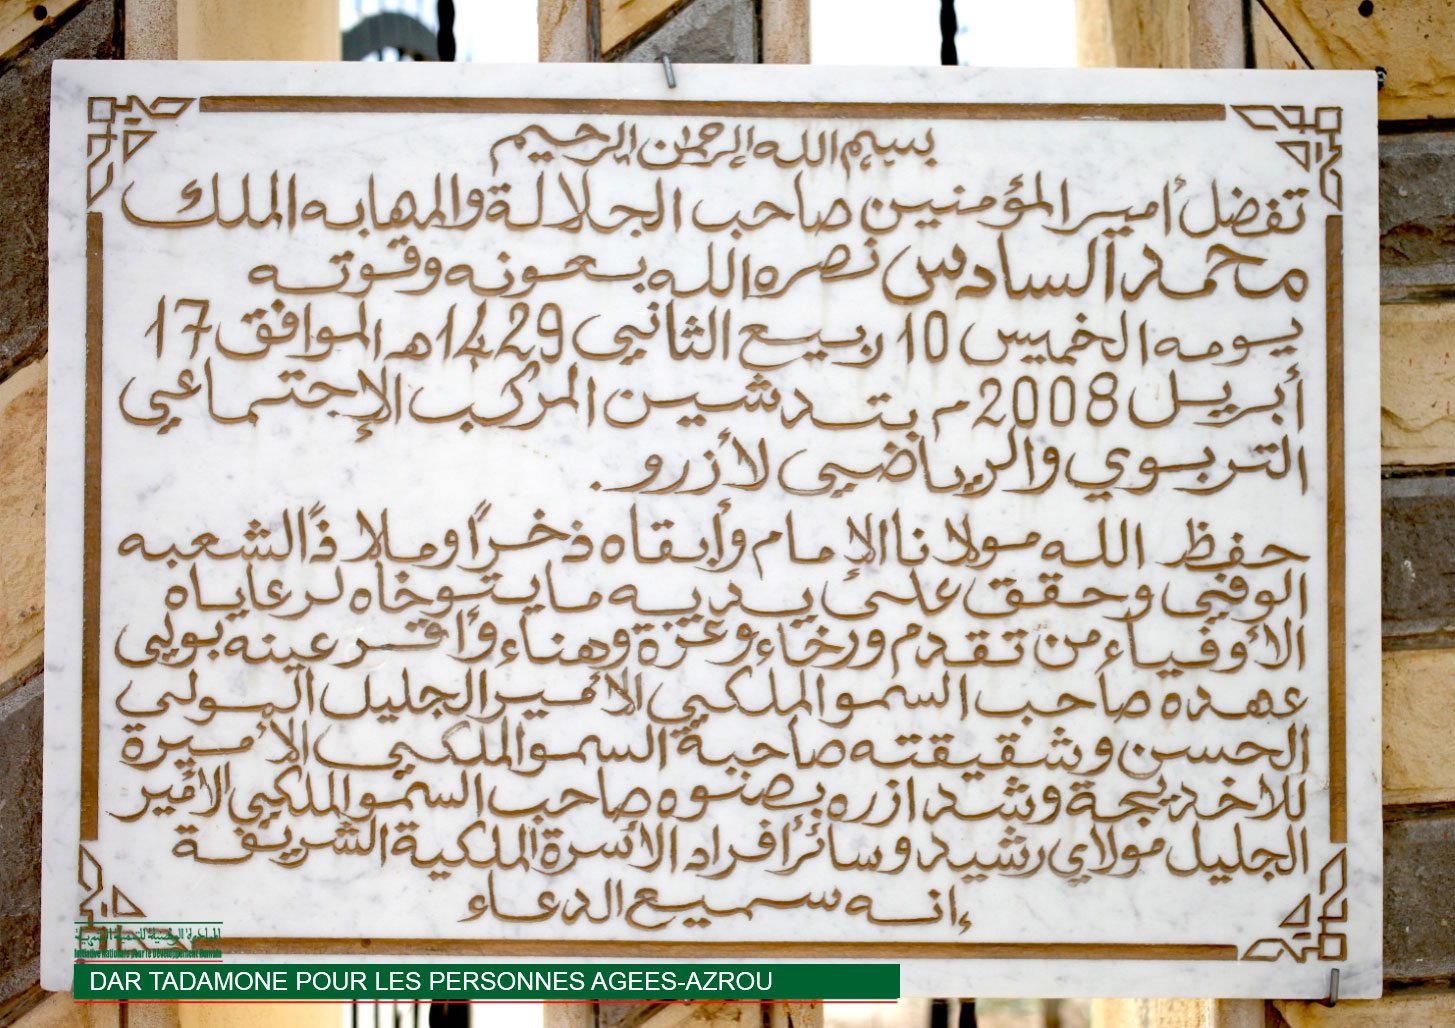 بسم الله الرحمان الرحيم
تفضل أمير المؤمنين صاحب الجلالة والمهابه الملك
محمد السادس نصره الله بعونه وقوته
يومه الخميس 10 ربيع الثاني 1429ه الموافق 17
أبريل 2008م بتدشين المركب الإجتماعي
التربوي والرياضي لأزرو.
حفظ الله مولانا الإمام وأبقاه ذخراً وملاذاً لشعبه
الوفي وحقق على يديه ما يتوخاه لرعاياه
الأوفياء من تقدم ورخاء وعزة وهناء وأقر عينه بولي
عهده صاحب السمو الملكي الأمير الجليل المولى
الحسن وشقيقته صاحبة السمو الملكي الأميرة
للاخديجة وشد ازره بصنوه صاحب السمو الملكي الأمير
الجليل مولاي رشيد وسائر أفراد الأسرة الملكية الشريفة
إنه سميع الدعاء
المبادرة الوطنية للتنمية البشرية
Initiative Nationale pour le Développement Humain
DAR TADAMONE POUR LES PERSONNES AGEES-AZROU